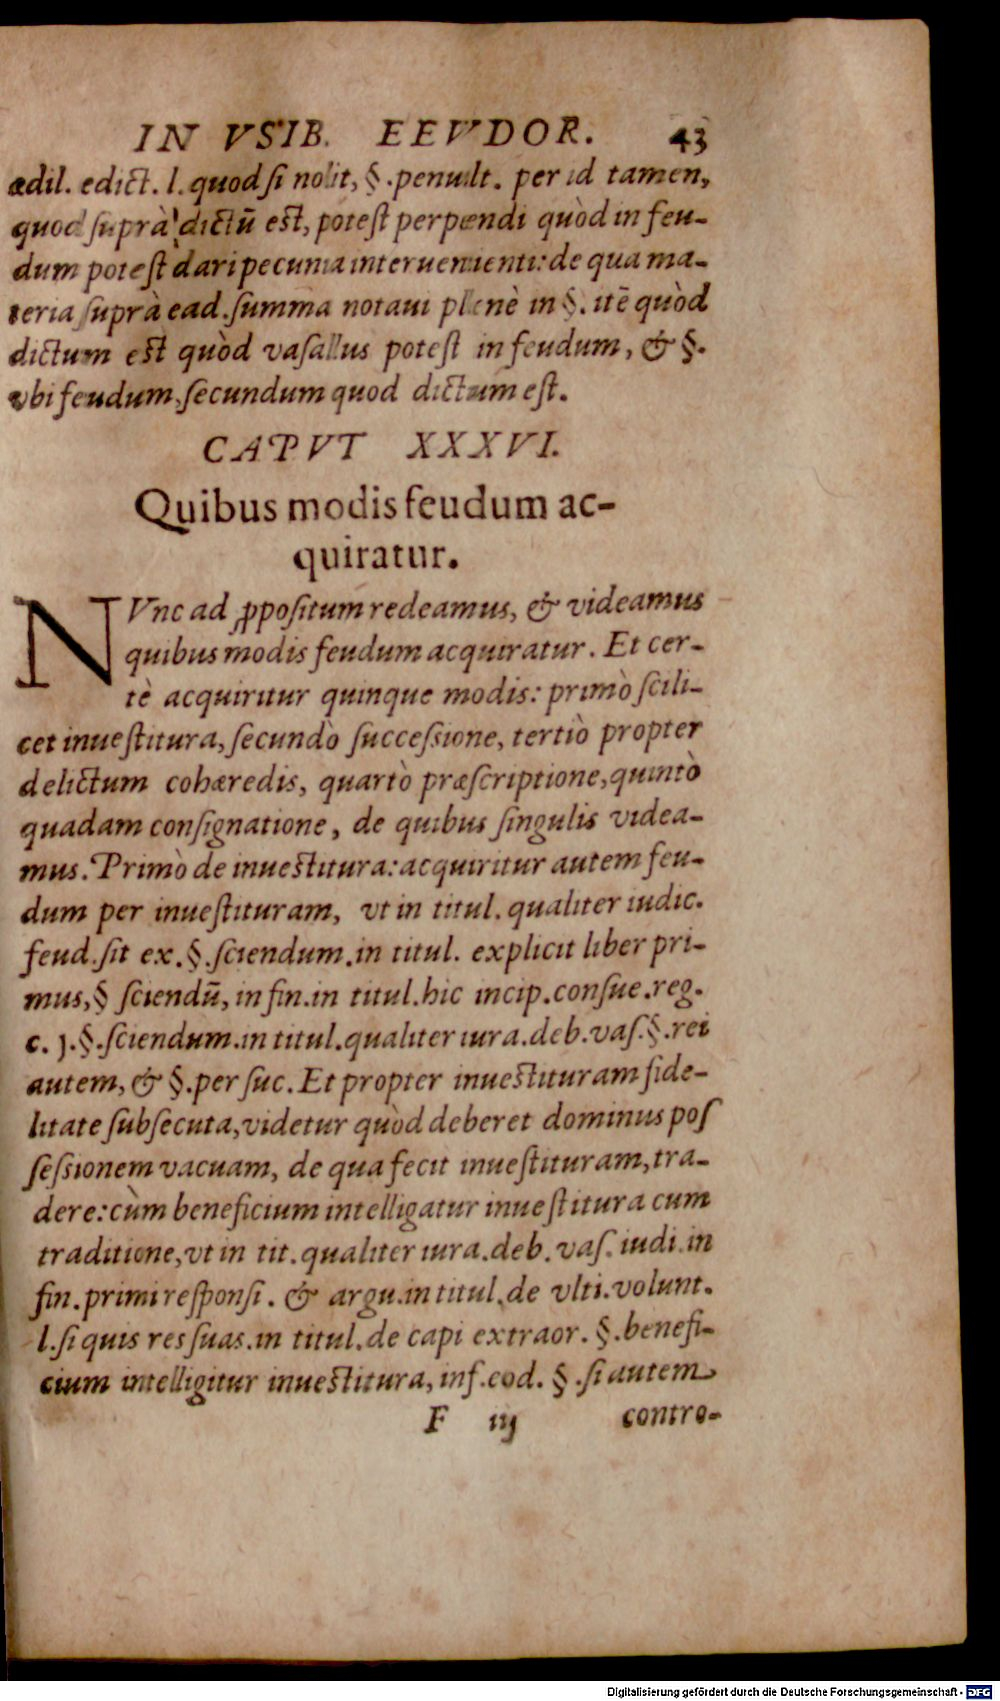 IN VSIB. EEVDOR. 43
ædil. edict. l. quod ſi nolit, §. penult. per id tamen,
quod ſuprà dictū est, poteſt perpendi quòd in feu-
dum poteſt dari pecunia interuenienti: de qua ma-
teria ſuprà ead. ſumma notaui plenè in §. itē quòd
dictum est quòd vaſallus poteſt in feudum, & §.
vbi feudum, ſecundum quod dictum eſt.
CAPVT XXXVI.
Quibus modis feudum ac-
quiratur.
NVnc ad ꝓpoſitum redeamus, & videamus
quibus modis feudum acquiratur. Et cer-
tè acquiritur quinque modis: primò ſcili-
cet inueſtitura, ſecundò ſucceſsione, tertiò propter
delictum cohæredis, quartò præſcriptione, quintò
quadam conſignatione, de quibus ſingulis videa-
mus. Primò de inuestitura: acquiritur autem feu-
dum per inueſtituram, vt in titul. qualiter iudic.
feud. ſit ex. §. ſciendum. in titul. explicit liber pri-
mus, § ſciendū, in fin. in titul. hic incip. conſue. reg.
c. j. §. ſciendum. in titul. qualiter iura. deb. vaſ. §. rei
autem, & §. per ſuc. Et propter inuestituram fide-
litate ſubſecuta, videtur quòd deberet dominus poſ
ſeſsionem vacuam, de qua fecit inueſtituram, tra-
dere: cùm beneficium intelligatur inueſtitura cum
traditione, vt in tit. qualiter iura. deb. vaſ. iudi. in
fin. primi reſponſi. & argu. in titul. de vlti. volunt.
l. ſi quis res ſuas. in titul. de capi extraor. §. benefi-
cium intelligitur inuestitura, inf. eod. §. ſi autem
F iij contro-
Digitalisierung gefördert durch die Deutsche Forschungsgemeinschaft - DFG